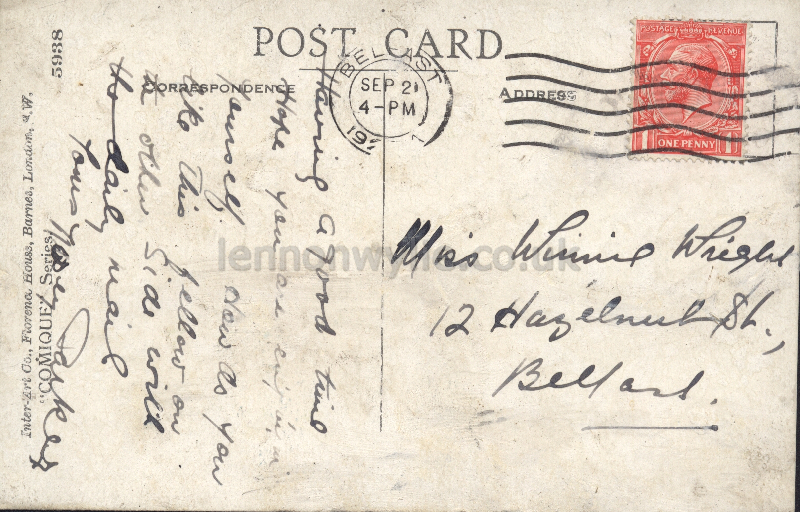 POST CARD
CORRESPONDENCE
ADDRESS
BELFAST
SEP 21
4-PM
19
POSTAGE REVENUE
ONE PENNY
Miss Winnie Wright
12 Hazelnut St.,
Belfast.
Having a good time
Hope you are enjoying
yourself. How do you
like this fellow on
the other side will
the daily mail
Yours
5938
"COMIQUE" Series
Inter-Art Co., Florence House, Barnes, London, S.W.
lennonwylie.co.uk